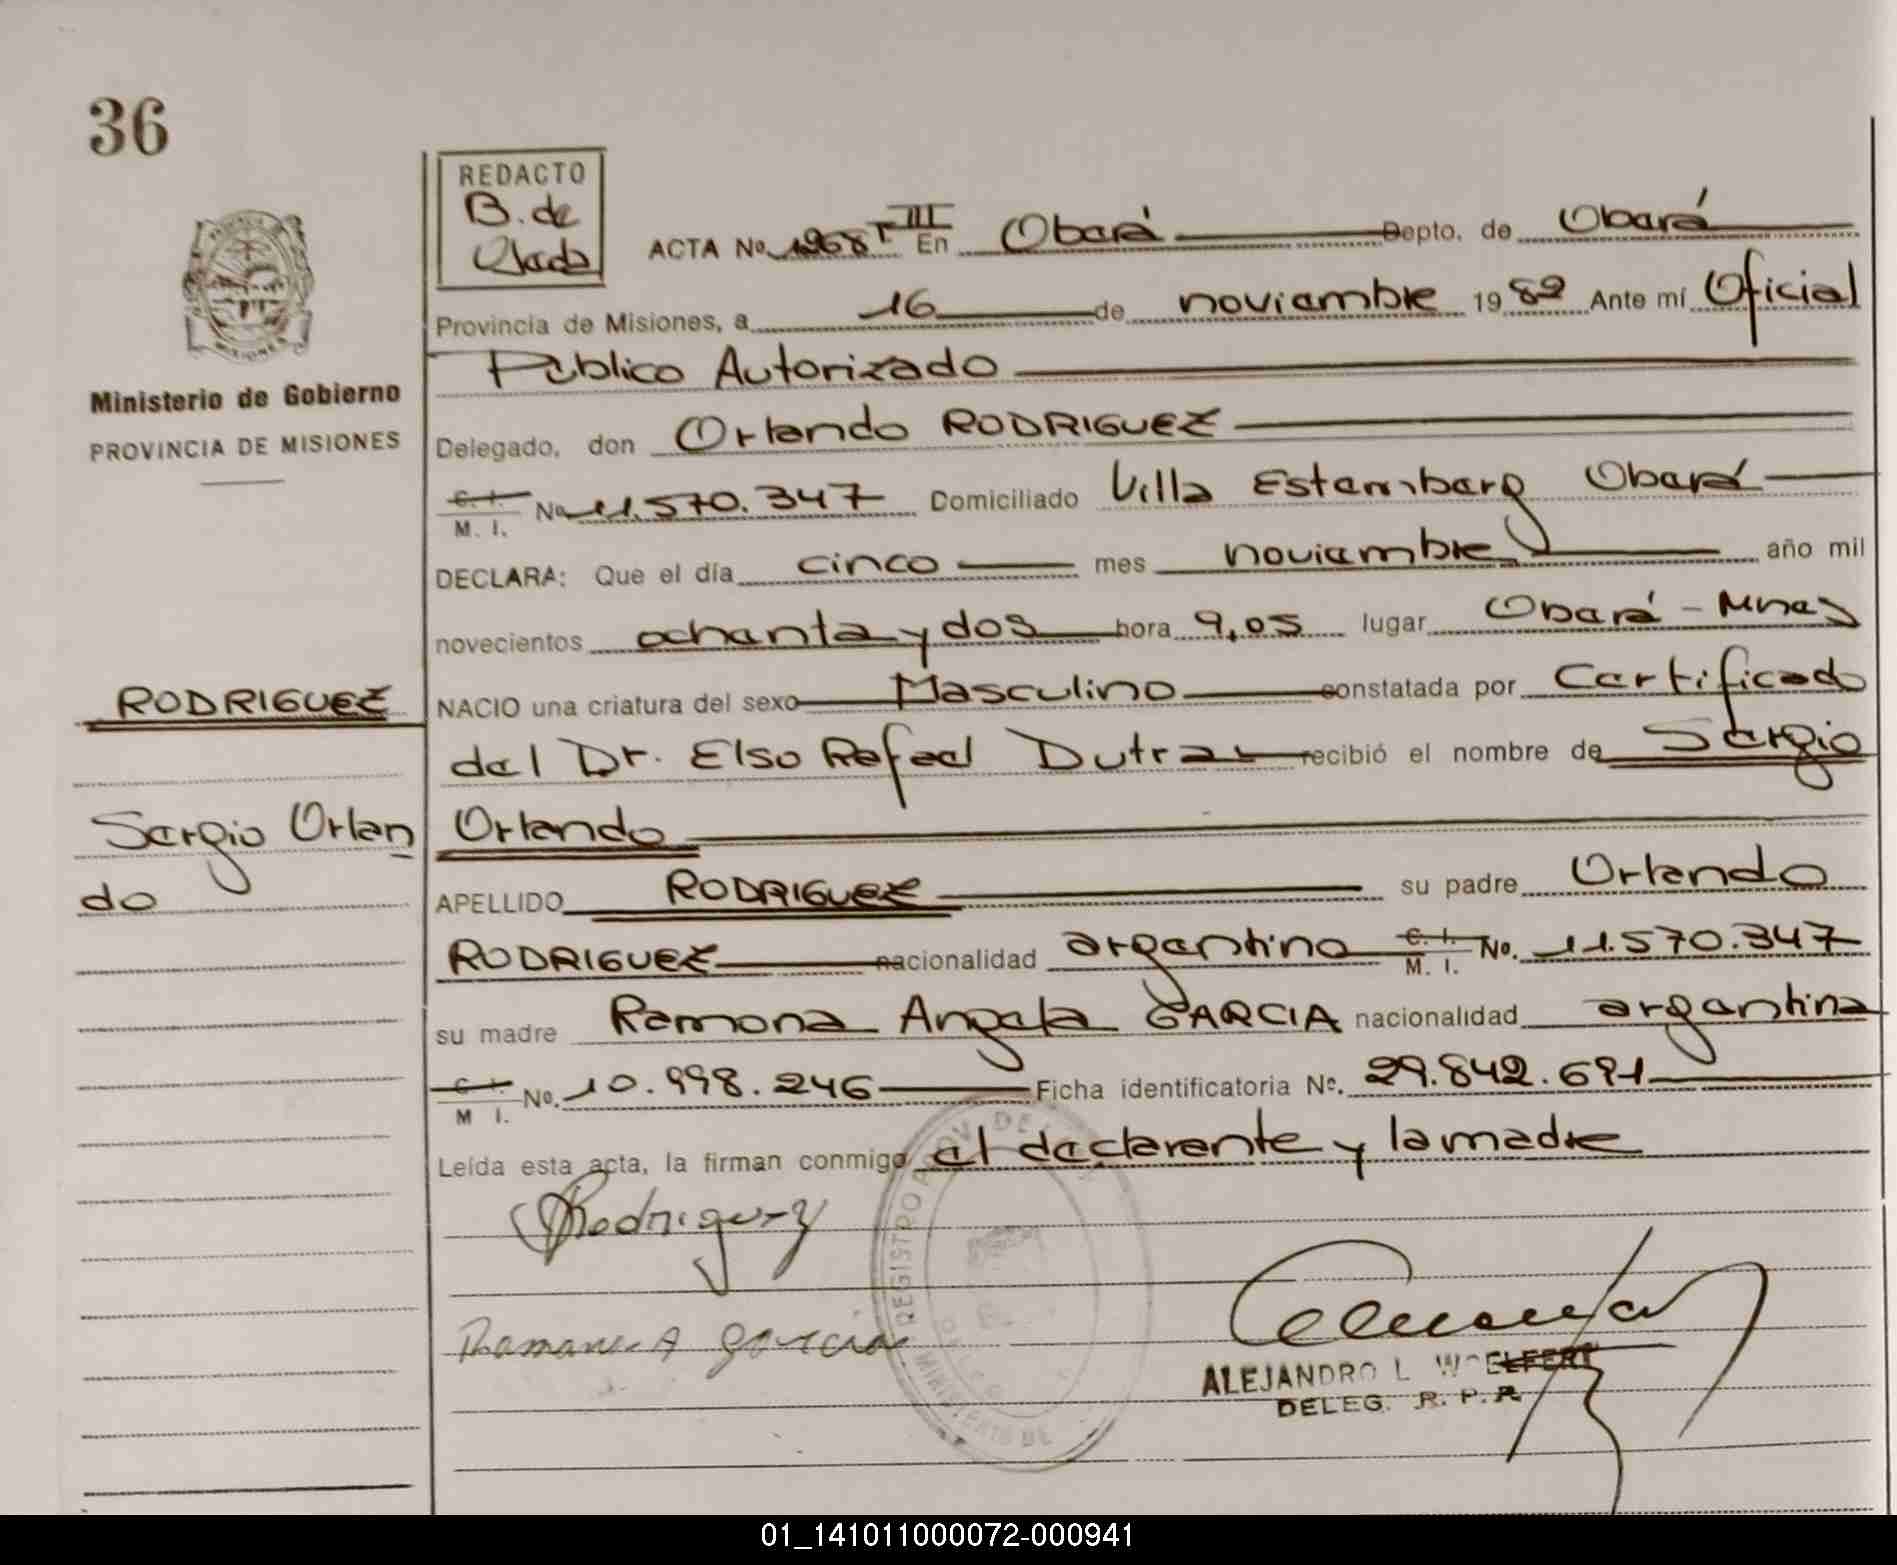 36
REDACTO
B. de
ACTA No. 1968 T III En Oberá Depto. de Oberá
Provincia de Misiones, a 16 de noviembre 1982 Ante mí Oficial
Público Autorizado
Ministerio de Gobierno
PROVINCIA DE MISIONES
MISIONES
Delegado, don Orlando RODRIGUEZ
C. I.
M. I. No. 11.570.347 Domiciliado Villa Estemberg Oberá
DECLARA: Que el día cinco mes noviembre año mil
novecientos ochenta y dos hora 9,05 lugar Oberá - Mnes
RODRIGUEZ
NACIO una criatura del sexo Masculino constatada por Certificado
del Dr. Elso Rafael Dutra recibió el nombre de Sergio
Sergio Orlan
do
Orlando
APELLIDO RODRIGUEZ su padre Orlando
RODRIGUEZ nacionalidad argentino C. I. M. I. No. 11.570.347
su madre Ramona Angela GARCIA nacionalidad argentina
C. I.
M I. No. 10.998.246 Ficha identificatoria Nº. 29.842.691
Leída esta acta, la firman conmigo el declarente y la madre
Rodriguez
Garcia
REGISTRO PROV. DE
MINISTERIO DE
ALEJANDRO L WOELFERT
DELEG. R. P. P.
01_141011000072-000941